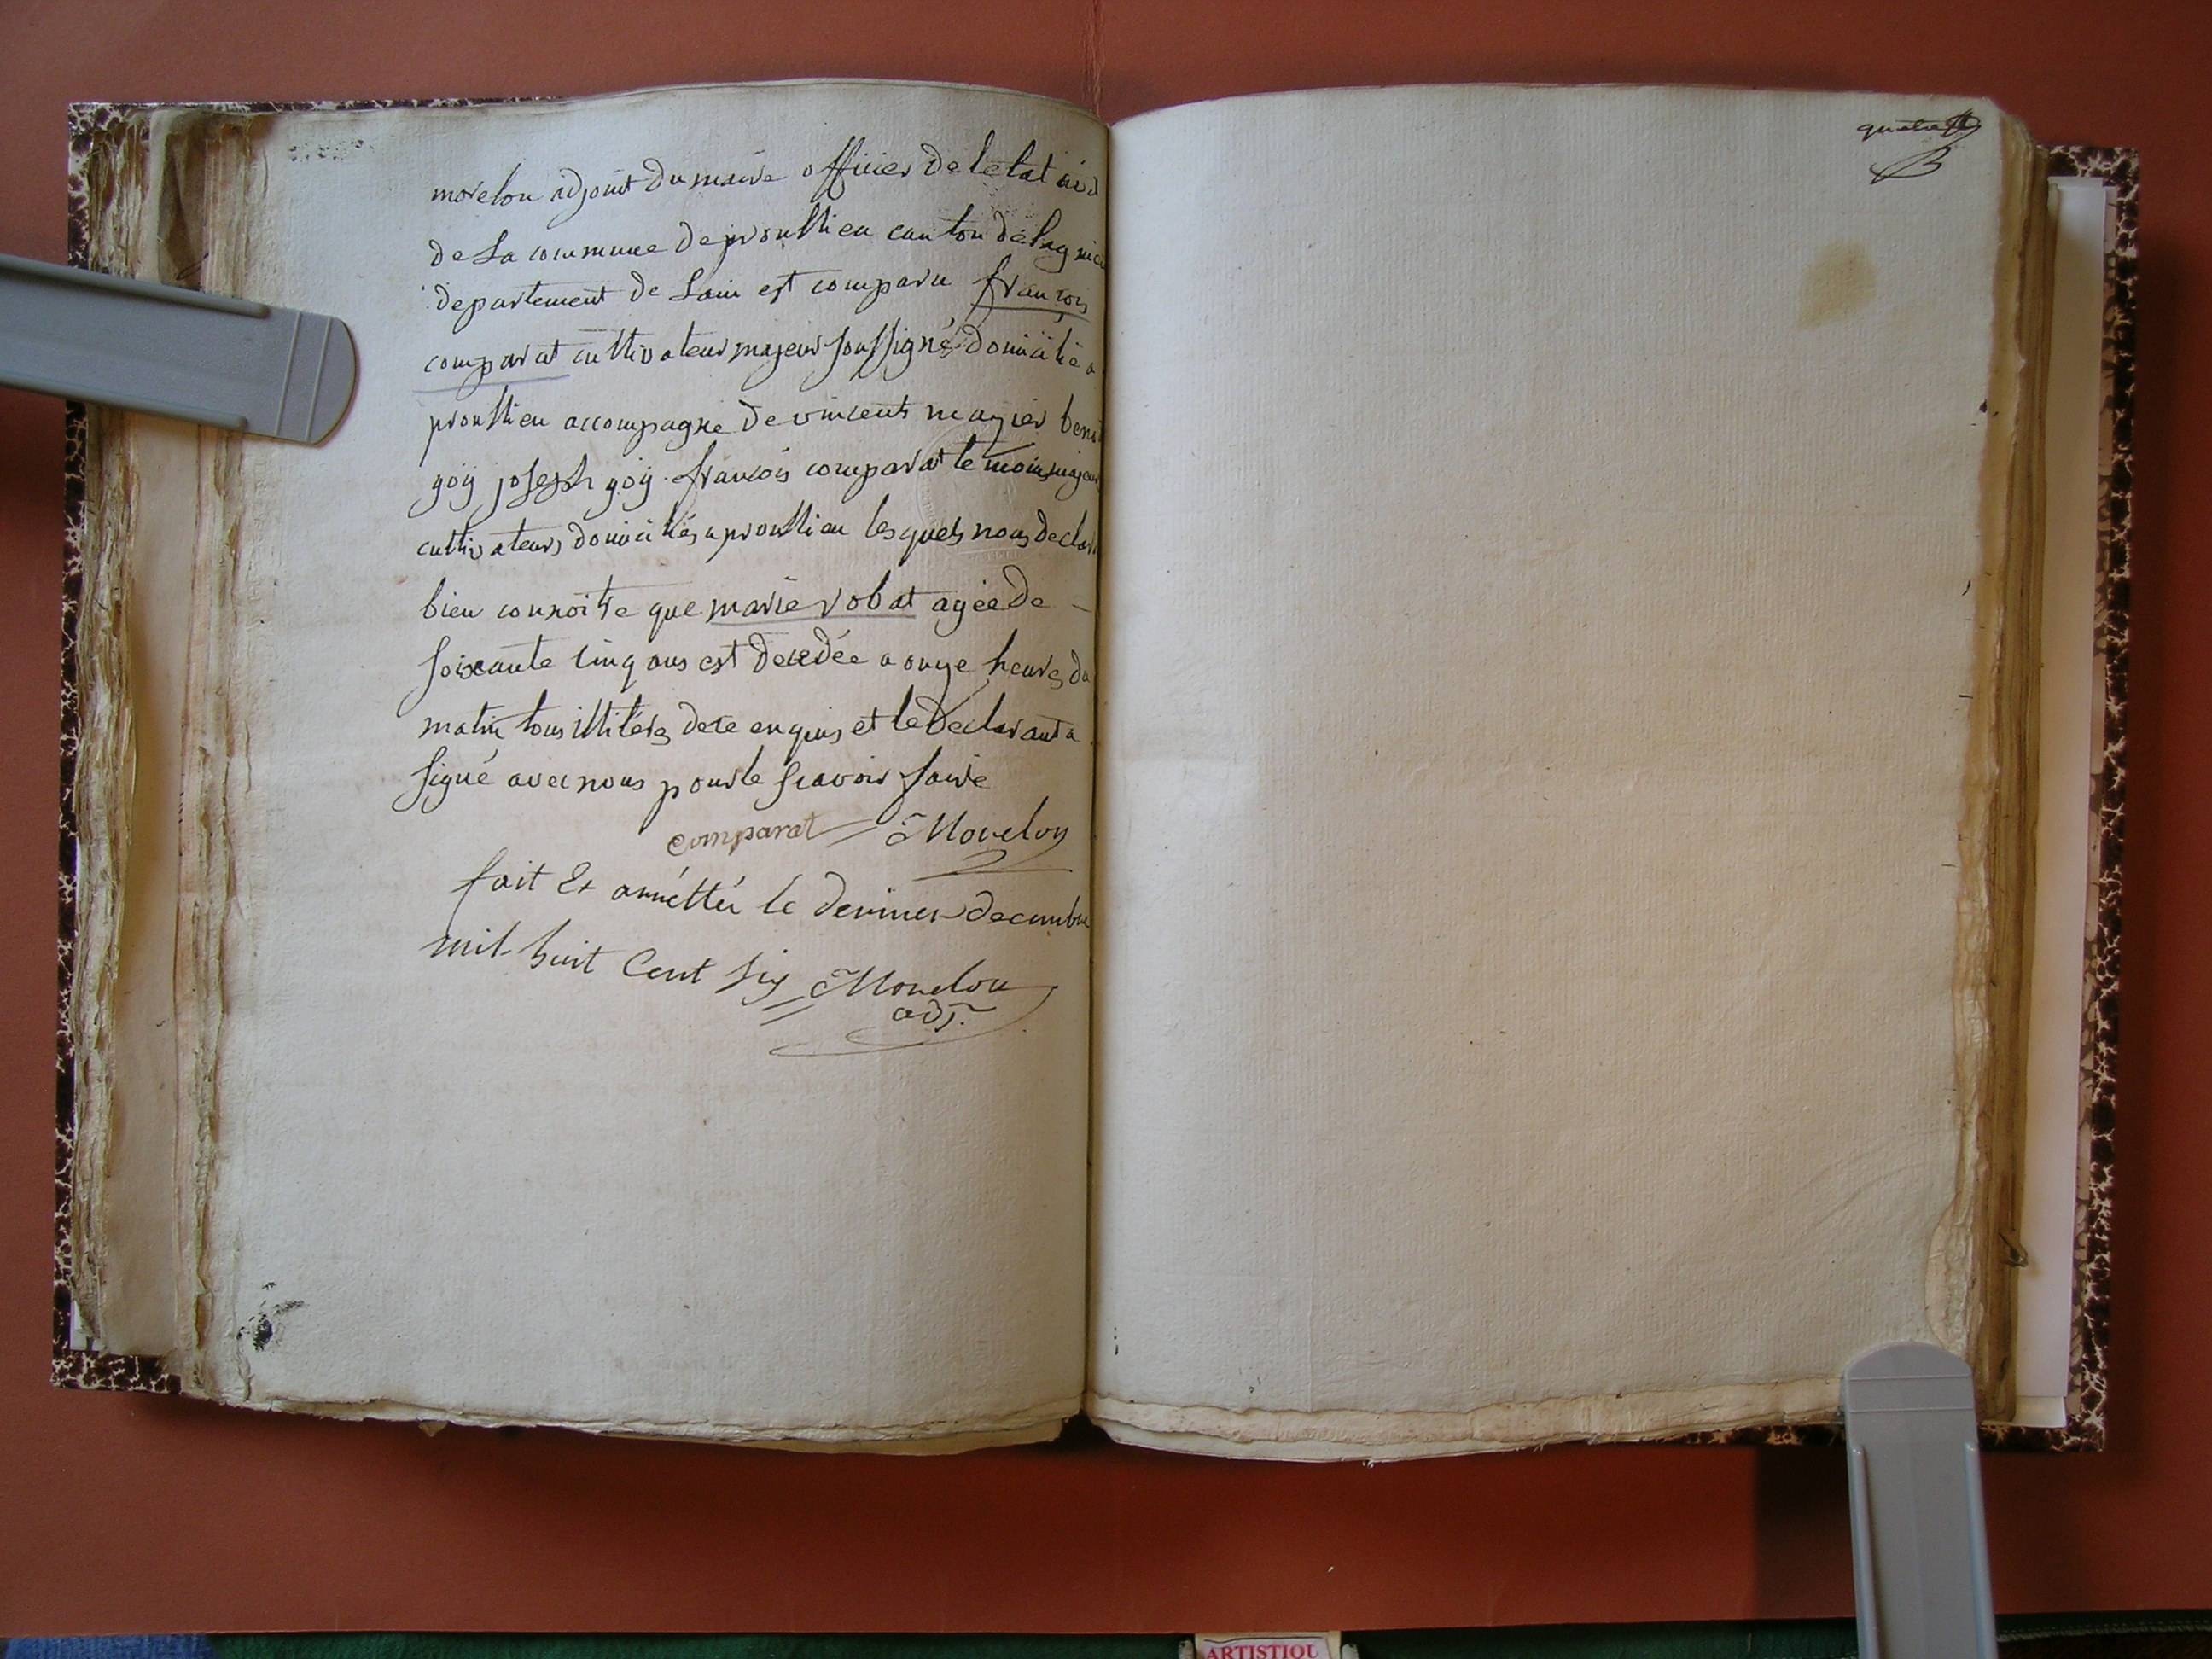 morelon adjoint du maire officier de letat civil
de La commune de proullieu canton de lagnieu
departement de Lain est comparu françois
comparat cultivateur majeur soussigné domicilié a
proullieu accompagne de vincent magier benoi
goÿ joseph goÿ françois comparat temoins majeurs
cultivateurs domiciliés a proullieu lesquels nous declar
bien connoitre que marie robat agée de
soixante cinq ans est decedée a onze heures du
matin tous illiterés de ce enquis et le declarant a
signé avec nous pour le scavoir faire
comparat Morelon
fait Et arrêtté le dernier decembre
mil huit Cent six Morelon
adj.t
quatre
ARTISTIQU